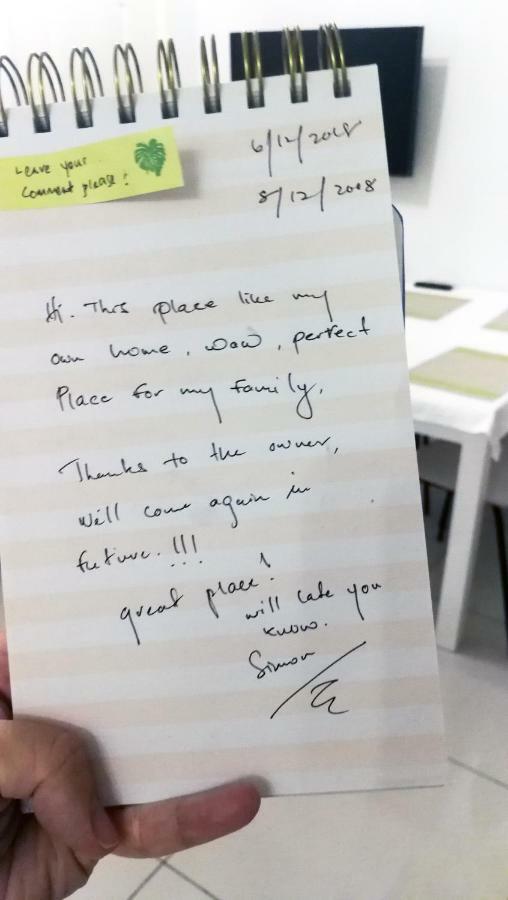 Leave your
comment please!
6/12/2018
8/12/2018
Hi. This place like my
own home, wow, perfect
Place for my family,
Thanks to the owner,
will come again in
future.!!!
great place!
will late you
know.
Simon